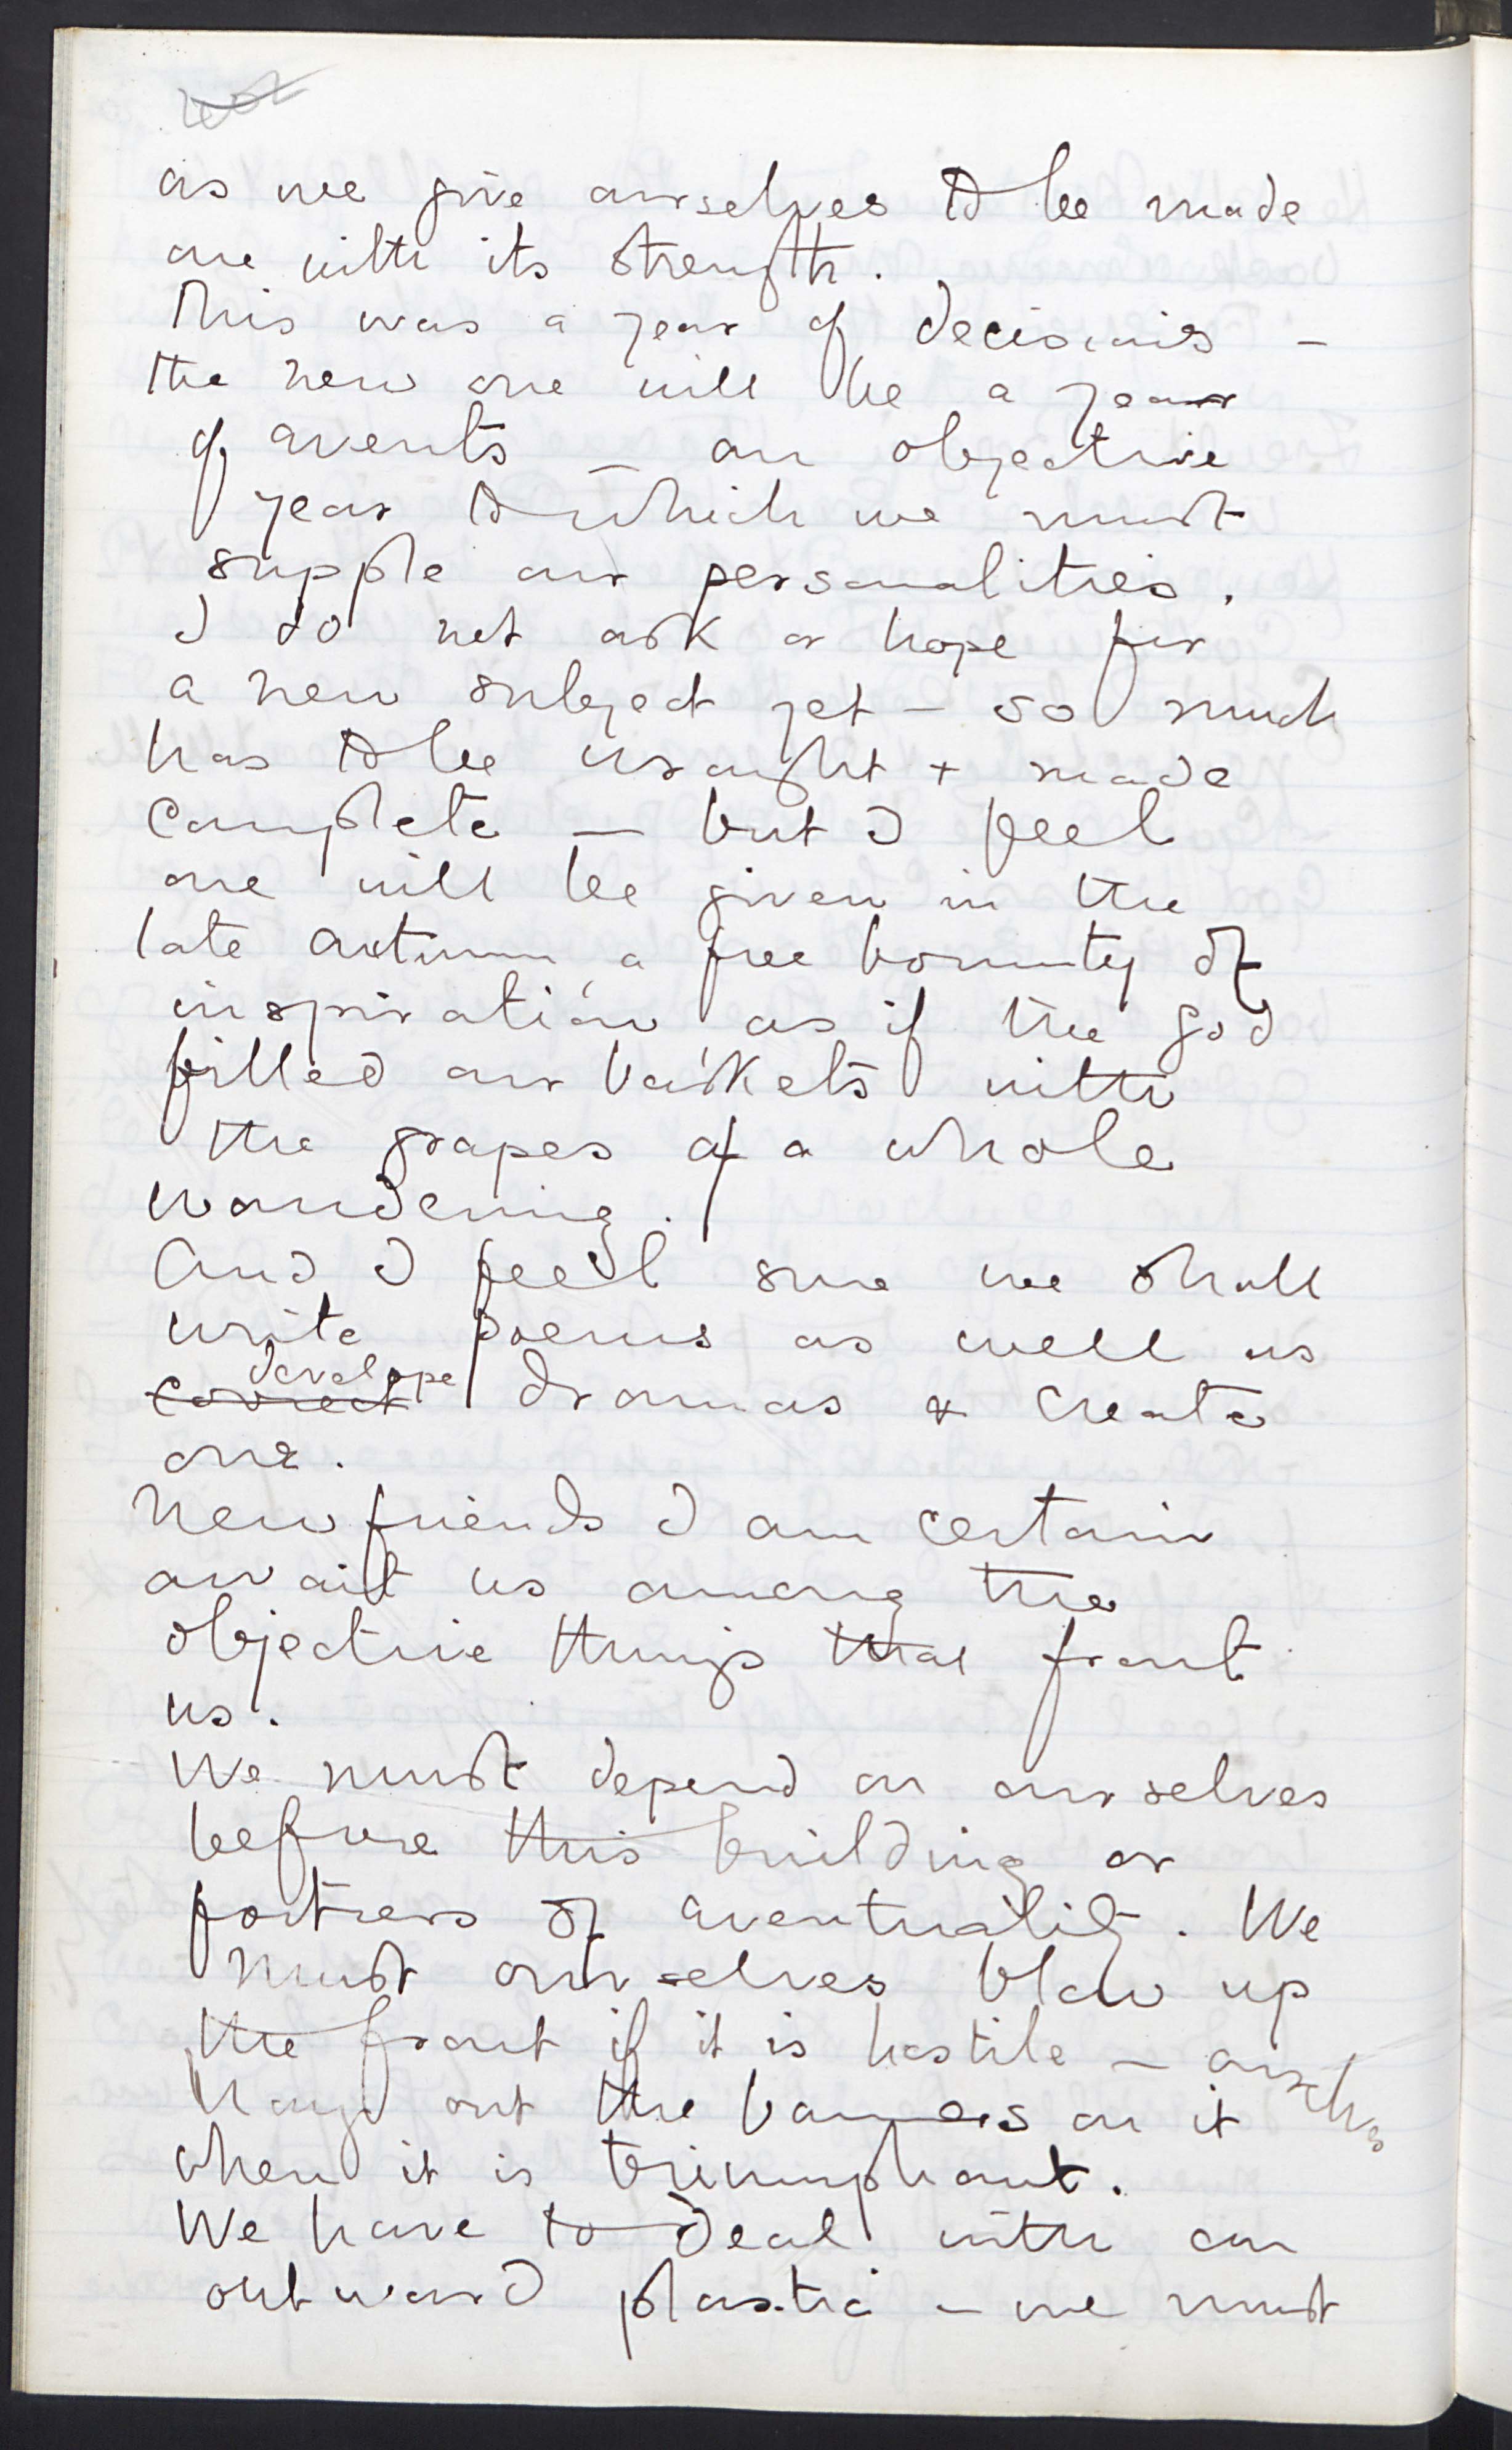 as we give ourselves to be made
one with its strength.
This was a year of decisions –
the new one will be a year
of events – an objective
year to which we must
supple our personalities.
I do not ask or hope for
a new subject yet – so much
has to be wrought + made
complete – but I feel
one will be given in the
late autumn, a free bounty of
inspiration, as if the god
filled our baskets with
the grapes of a whole
wandering.
And I feel sure we shall
write poems as well as
develope
correct dramas & create
one.
New friends I am certain
await us among the
objective things that front
us.
We must depend on ourselves
before this building or
fortress of eventuality. We
must ourselves blow up
the front if it is hostile – ourselves
hang out the banners on it
when it is triumphant.
We have to deal with an
outward plastic – we must